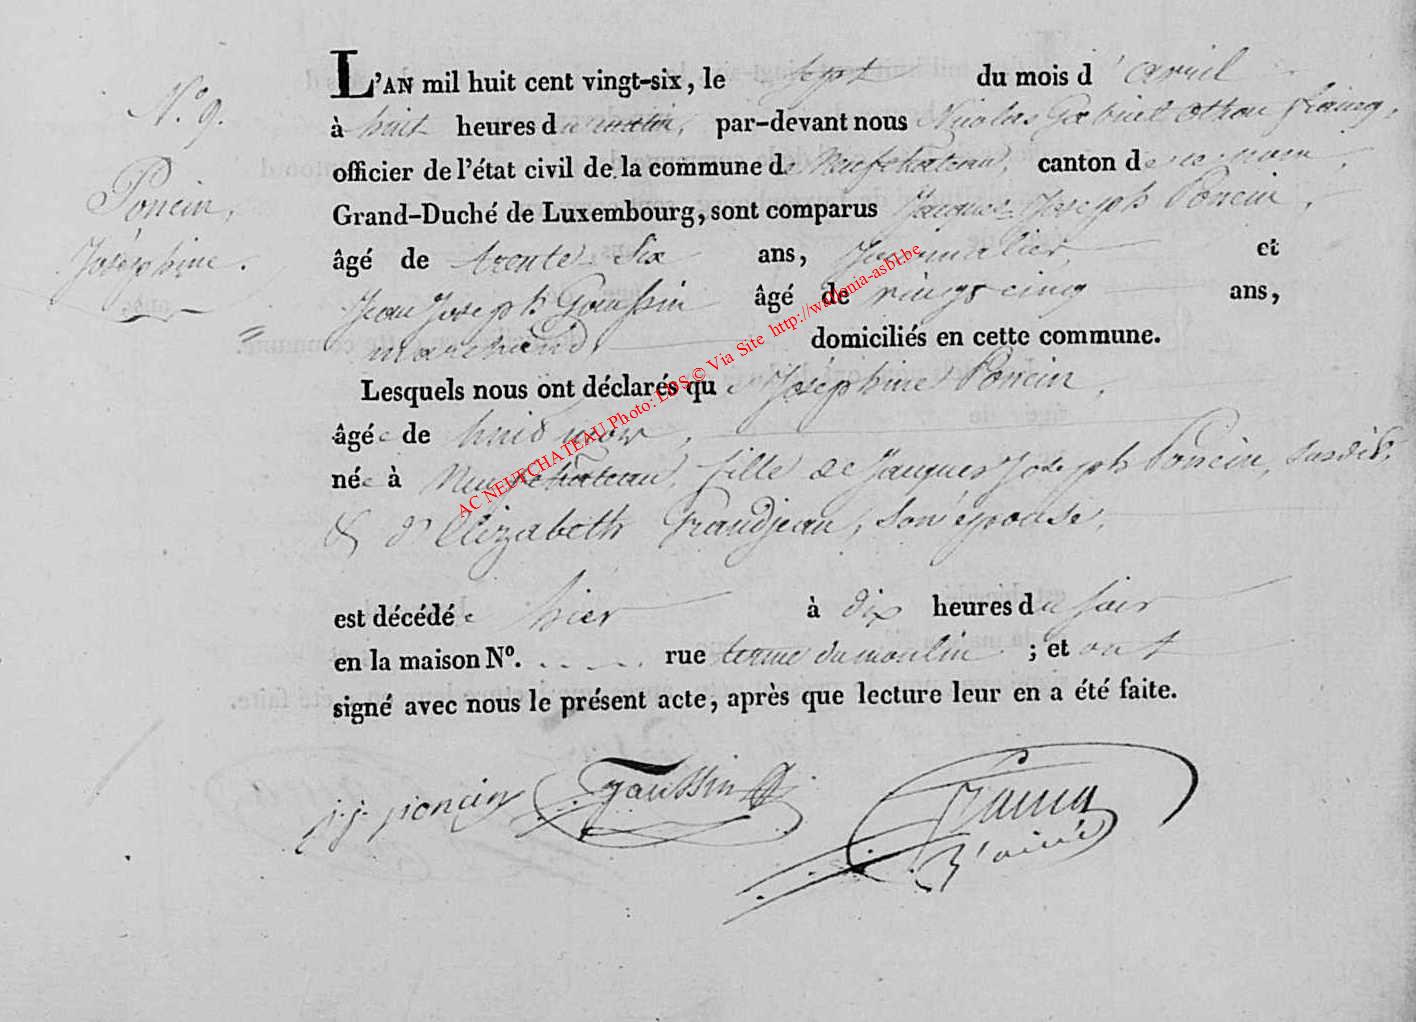 N.° 9.
Poncin,
Joséphine.
L'AN mil huit cent vingt-six, le sept du mois d'avril
à huit heures du matin, par-devant nous Nicolas Gabriel Othon Francq,
officier de l'état civil de la commune de Neufchateau, canton de ce nom,
Grand-Duché de Luxembourg, sont comparus Jacques Joseph Poncin,
âgé de trente-six ans, Journalier, et
Jean Joseph Goussin âgé de vingt cinq ans,
marchand, domiciliés en cette commune.
Lesquels nous ont déclarés que Joséphine Poncin,
âgée de huit mois,
née à Neufchateau, fille de Jacques Joseph Poncin, susdit,
& d'Elizabeth Grandjean, son épouse,
est décédée hier à dix heures du soir
en la maison N°. . . . . . rue terme du moulin ; et ont
signé avec nous le présent acte, après que lecture leur en a été faite.
j.j. poncin
Francq
L'ainé
AC NEUFCHATEAU Photo: LDS © Via Site http://wallonia-asbl.be